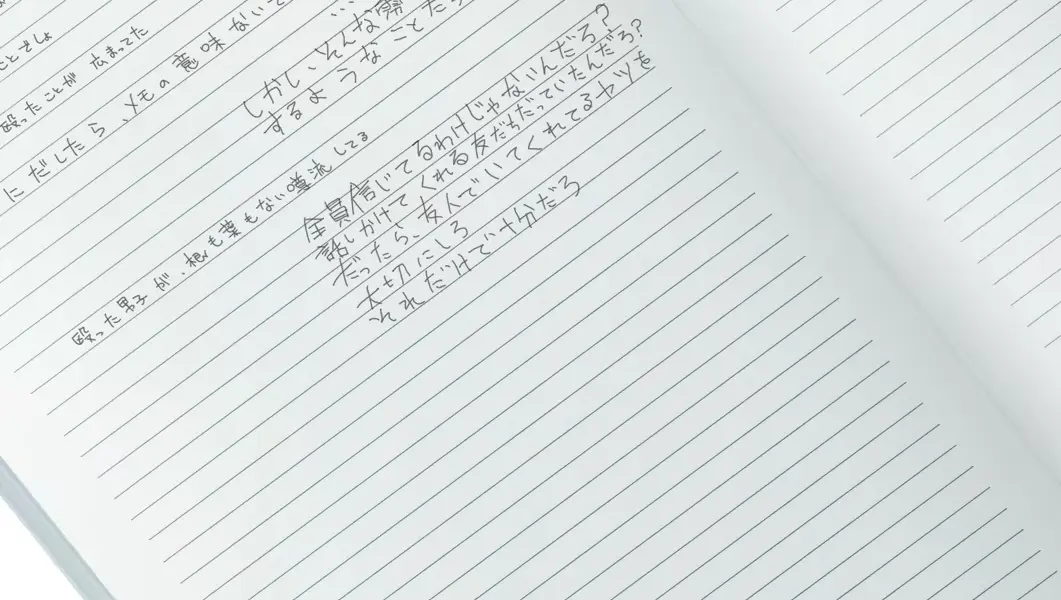 ことでしょ
殴ったことが 広まってた
にだしたら、メモの意味ないで
…
しかし、そんな
するようなことだ
殴った男子が、根も葉もない噂流してる
全員信じてるわけじゃないんだろ?
話しかけてくれる友だちだっていたんだろ?
だったら、友人でいてくれてるヤツを
大切にしろ
それだけで十分だろ